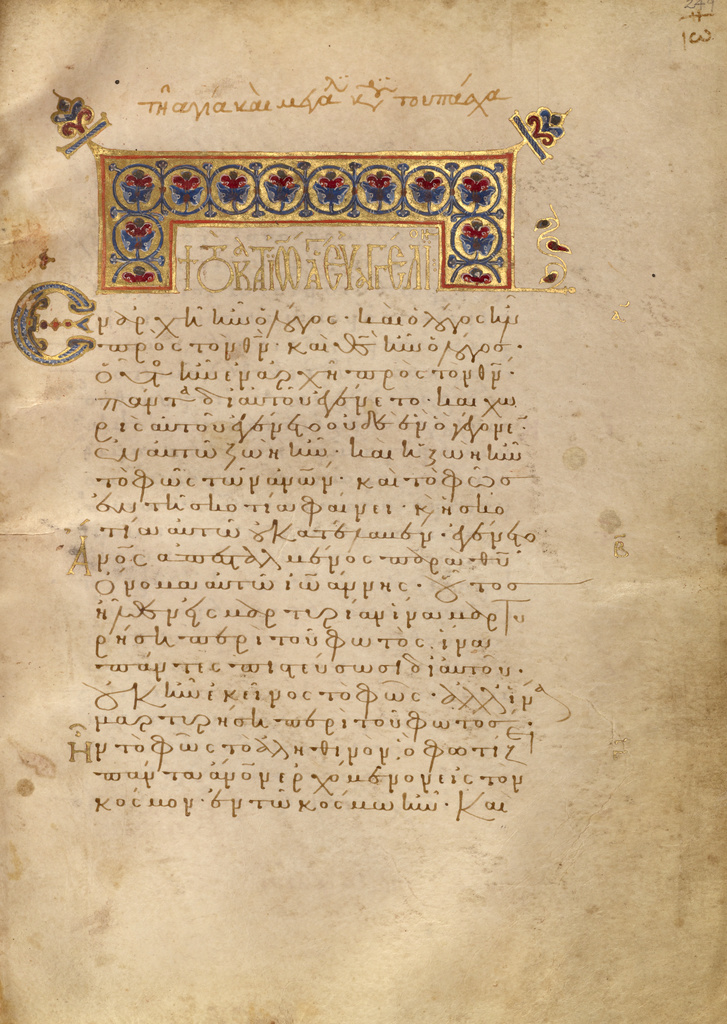 τῇ ἁγία καὶ μεγάλ κυ τοῦ πάσχα
† τὸ κατὰ ἰω ἅγ εὐαγγέλιον
Ἐν ἀρχῇ ἦν ὁ λόγος· καὶ ὁ λόγος ἦν
πρὸς τὸν θν· καὶ θς ἦν ὁ λόγος·
οὗτος ἦν ἐν ἀρχῇ πρὸς τὸν θν·
πάντα δι αὐτοῦ ἐγένετο· καὶ χω
ρὶς αὐτοῦ ἐγένετο οὐδὲ ἓν ὃ γέγονεν·
ἐν αὐτῶ ζωὴ ἦν· καὶ ἡ ζωὴ ἦν
τὸ φῶς τῶν ἀνων· καὶ τὸ φῶς
ἐν τῆ σκοτία φαίνει· κ ἡ σκο
τία αὐτὸ οὐ κατέλαβεν· ἐγένετο
ἄνος ἀπεσταλμένος παρὰ θυ
ὄνομα αὐτῶ ἰωάννης· οὗτος
ἦλθεν εἰς μαρτυρίαν ἵνα μαρτυ
ρήση περὶ τοῦ φωτὸς ἵνα
πάντες πιστεύσωσι δι αὐτοῦ·
οὐκ ἦν ἐκεῖνος τὸ φῶς· ἀλλ ἵνα
μαρτυρήση περὶ τοῦ φωτός·
Ἦν τὸ φῶς τὸ ἀληθινὸν ὃ φωτίζει
πάντα ἄνον ἐρχόμενον εἰς τὸν
κόσμον· ἐν τῶ κόσμω ἦν· Καὶ